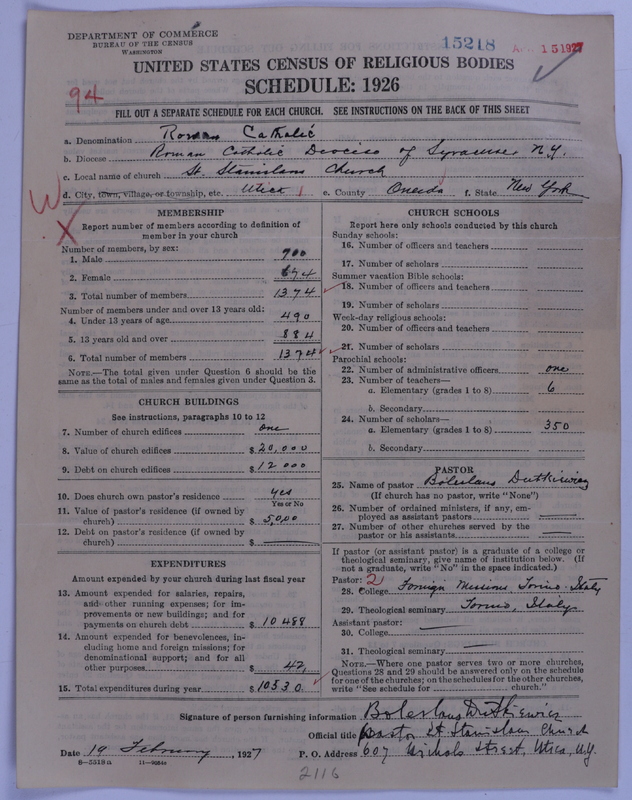 DEPARTMENT OF COMMERCE
BUREAU OF THE CENSUS
WASHINGTON
15218
15 1927
UNITED STATES CENSUS OF RELIGIOUS BODIES
SCHEDULE: 1926
94
FILL OUT A SEPARATE SCHEDULE FOR EACH CHURCH. SEE INSTRUCTIONS ON THE BACK OF THIS SHEET
a. Denomination Roman Catholic
b. Diocese Roman Catholic Diocese of Syracuse, N.Y.
c. Local name of church St. Stanislaus Church
d. City, town, village, or township, etc. Utica e. County Oneida f. State New York
W
X
MEMBERSHIP
Report number of members according to definition of
member in your church
Number of members, by sex:
1. Male 700
2. Female 674
3. Total number of members 1374
Number of members under and over 13 years old:
4. Under 13 years of age 490
5. 13 years old and over 884
6. Total number of members 1374
NOTE.—The total given under Question 6 should be
same as the total of males and females given under Question 3.
CHURCH BUILDINGS
See instructions, paragraphs 10 to 12
7. Number of church edifices one
8. Value of church edifices $ 20,000
9. Debt on church edifices $ 12000
10. Does church own pastor's residence yes
Yes or No
11. Value of pastor's residence (if owned by
church) $ 5,000
12. Debt on pastor's residence (if owned by
church) $
EXPENDITURES
Amount expended by your church during last fiscal year
13. Amount expended for salaries, repairs,
and other running expenses; for im-
provements or new buildings; and for
payments on church debt $ 10488
14. Amount expended for benevolences, in-
cluding home and foreign missions; for
denominational support; and for all
other purposes $ 42
15. Total expenditures during year $ 10530
CHURCH SCHOOLS
Report here only schools conducted by this church
Sunday schools:
16. Number of officers and teachers
17. Number of scholars
Summer vacation Bible schools:
18. Number of officers and teachers
19. Number of scholars
Week-day religious schools:
20. Number of officers and teachers
21. Number of scholars
Parochial schools:
22. Number of administrative officers one
23. Number of teachers—
a. Elementary (grades 1 to 8) 6
b. Secondary
24. Number of scholars—
a. Elementary (grades 1 to 8) 350
b. Secondary
PASTOR
25. Name of pastor Boleslaus Dutkiewicz
(If church has no pastor, write "None")
26. Number of ordained ministers, if any, em-
ployed as assistant pastors
27. Number of other churches served by the
pastor or his assistants
If pastor (or assistant pastor) is a graduate of a college or
theological seminary, give name of institution below. (If
not a graduate, write "No" in the space indicated.)
Pastor: 2
28. College Foreign Missions, Torino, Italy
29. Theological seminary Torino, Italy
Assistant pastor:
30. College
31. Theological seminary
NOTE.—Where one pastor serves two or more churches,
Questions 28 and 29 should be answered only on the schedule
for one of the churches; on the schedules for the other churches,
write "See schedule for church."
Signature of person furnishing information Boleslaus Dutkiewicz
Official title Pastor St Stanislaus Church
Date 19 February, 1927 P. O. Address 607 Nichols Street, Utica, N.Y.
8-5518a 11-9084a
2116